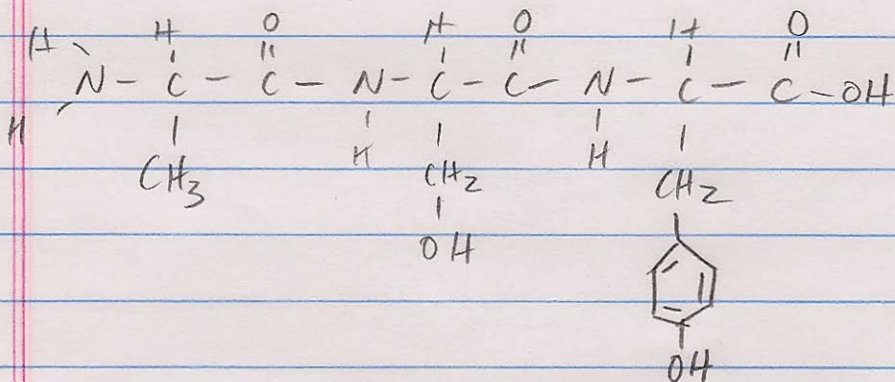 H H O H O H O
N - C - C - N - C - C - N - C - C - OH
H
CH3 H CH2 H CH2
OH
OH